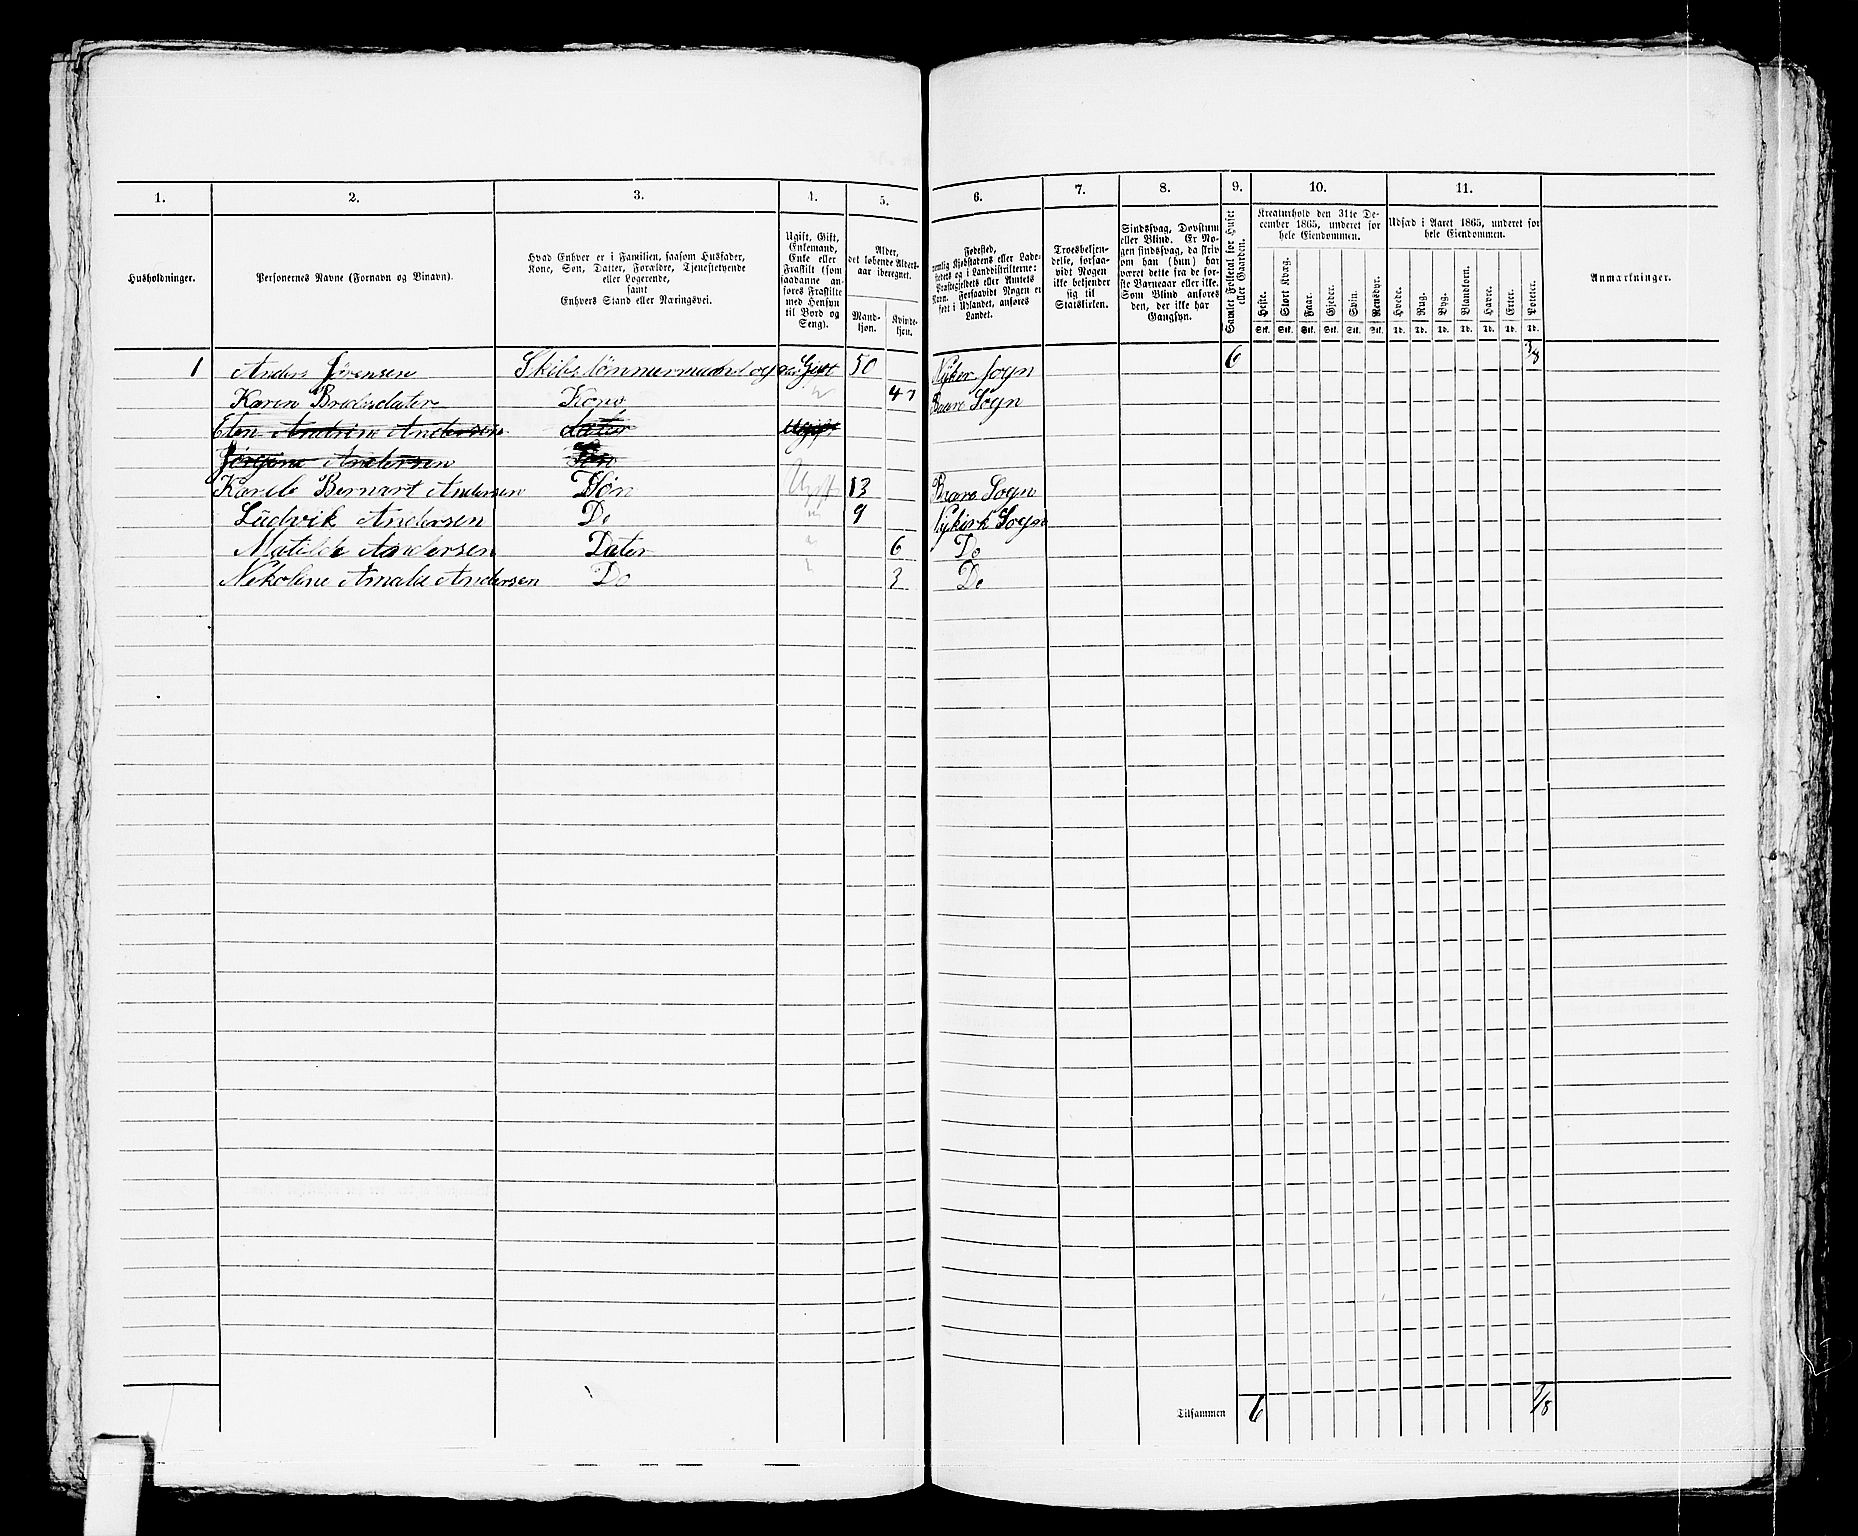 1. 2. 3. 4. 5. 6. 7. 8. 9. 10. 11.
Husholdninger.
Personernes Navne (Fornavn og Binavn).
Hvad Enhver er i Familien, saasom Husfader,
Kone, Søn, Datter, Forældre, Tjenestetyende
eller Logerende,
samt
Enhvers Stand eller Næringsvei.
Ugift, Gift,
Enkemand,
Enke eller
Fraskilt (som
saadanne an-
føres Fraskilte
med Hensyn
til Bord og
Seng).
Alder,
det løbende Alders-
aar iberegnet.
Mand-
kjøn.
Kvinde-
kjøn.
Fødested,
nemlig Kjøbstadens eller Lade-
stedets og i Landdistrikterne:
Præstegjeldets eller Amtets
Navn. Forsaavidt Nogen er
født i Udlandet, anføres
Landet.
Troesbekjen-
delse, forsaa-
vidt Nogen
ikke bekjender
sig til
Statskirken.
Sindssvag, Døvstum
eller Blind. Er No-
gen sindssvag, da skriv
om han (hun) har
været dette fra de før-
ste Barneaar eller ikke.
Som Blind anføres
den, der ikke har
Gangsyn.
Samlet Folketal for Huset
eller Gaarden.
Kreaturhold den 31te De-
cember 1865, underet for
hele Eiendommen.
Heste. Stort Kvæg. Faar. Gjeder. Svin. Rensdyr.
Stk. Stk. Stk. Stk. Stk. Stk.
Udsæd i Aaret 1865, underet for
hele Eiendommen.
Hvede. Rug. Byg. Blandkorn. Havre. Erter. Poteter.
Td. Td. Td. Td. Td. Td. Td.
Anmærkninger.
1 Anders Jørensen Skibstømmermand og Gift 50 Nyker sogn 6
Karen Kone 47 Sogn
Andrine Andersen Dater Ugift
Jørgene Andersen
Karele Bernart Andersen Søn Ugift 13 Sogn
Ludvik Andersen Do 9 Nykirk Sogn
Matilde Andersen Dater 6 Do
Nekoline Amale Andersen Do 3 Do
Tilsammen 6